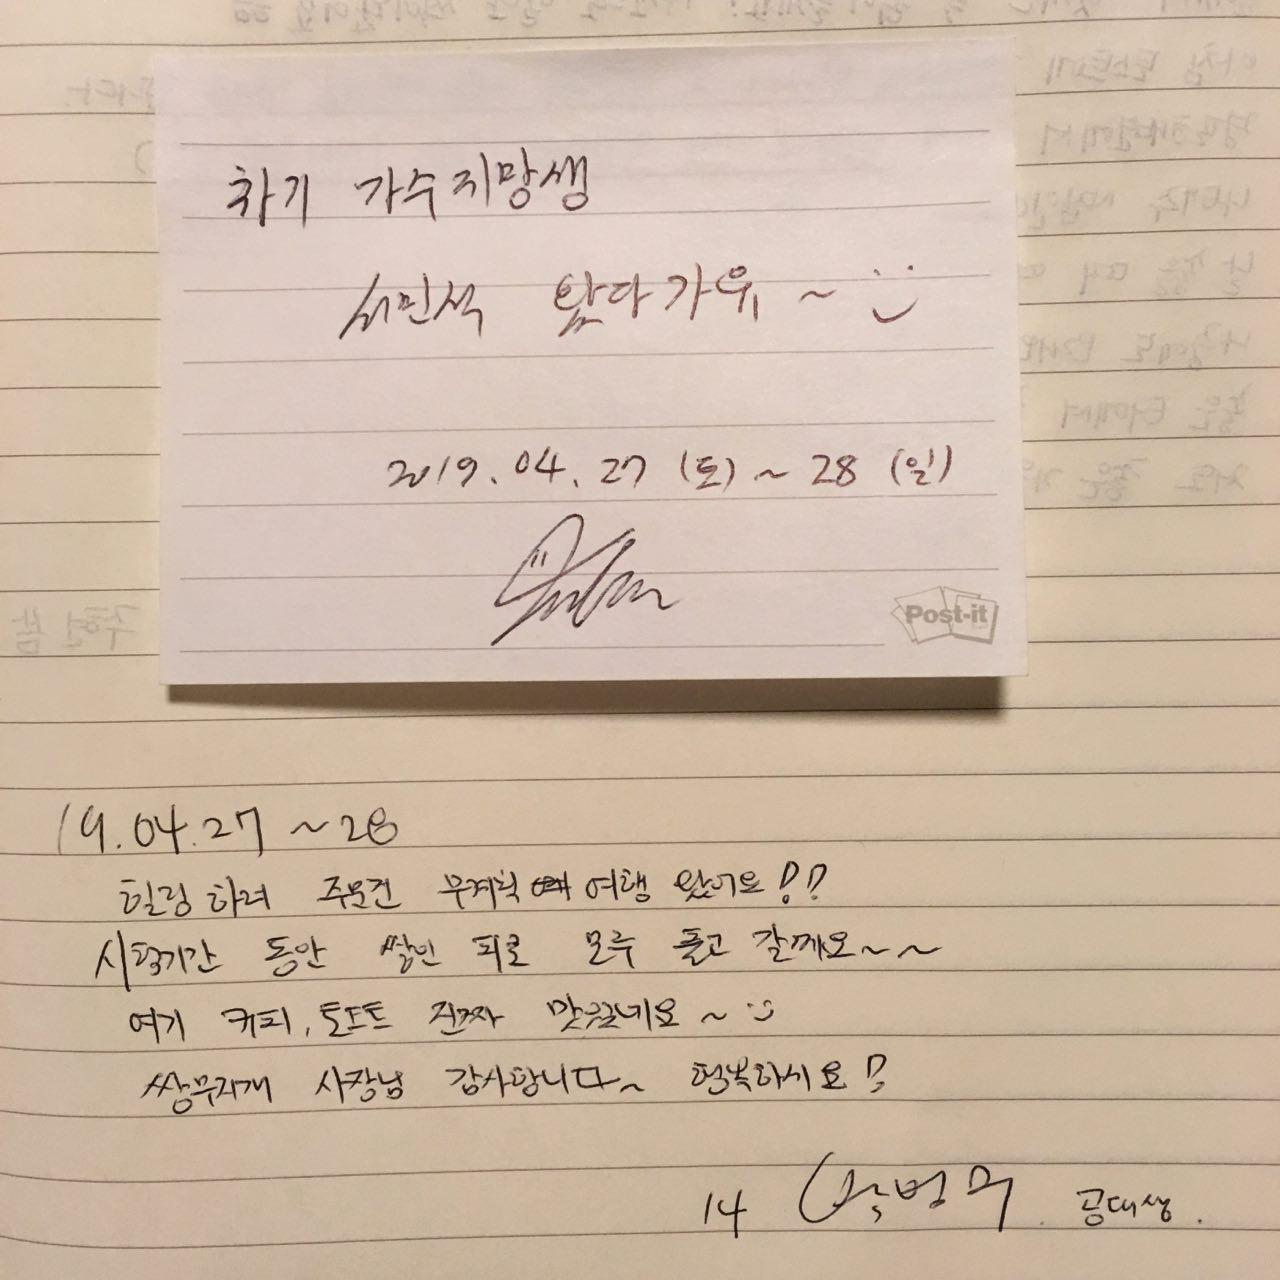 차기 가수지망생
서민석 왔다가유~
2019.04.27 (토) ~ 28 (일)
Post-it
19.04.27 ~28
힐링하러 무계획 여행 왔어요!!
시험기간 동안 쌓인 피로 모두 풀고 갈께요~~
여기 커피, 토스트 진짜 맛있네요~
쌍무지개 사장님 감사합니다~ 행복하세요!
14 범 공대생.